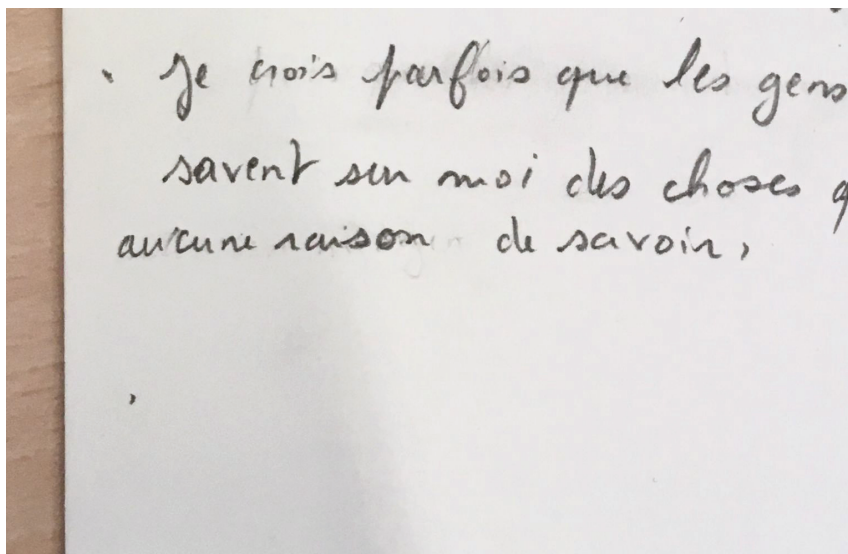 Je crois parfois que les gens
savent sur moi des choses
aucune raison de savoir,